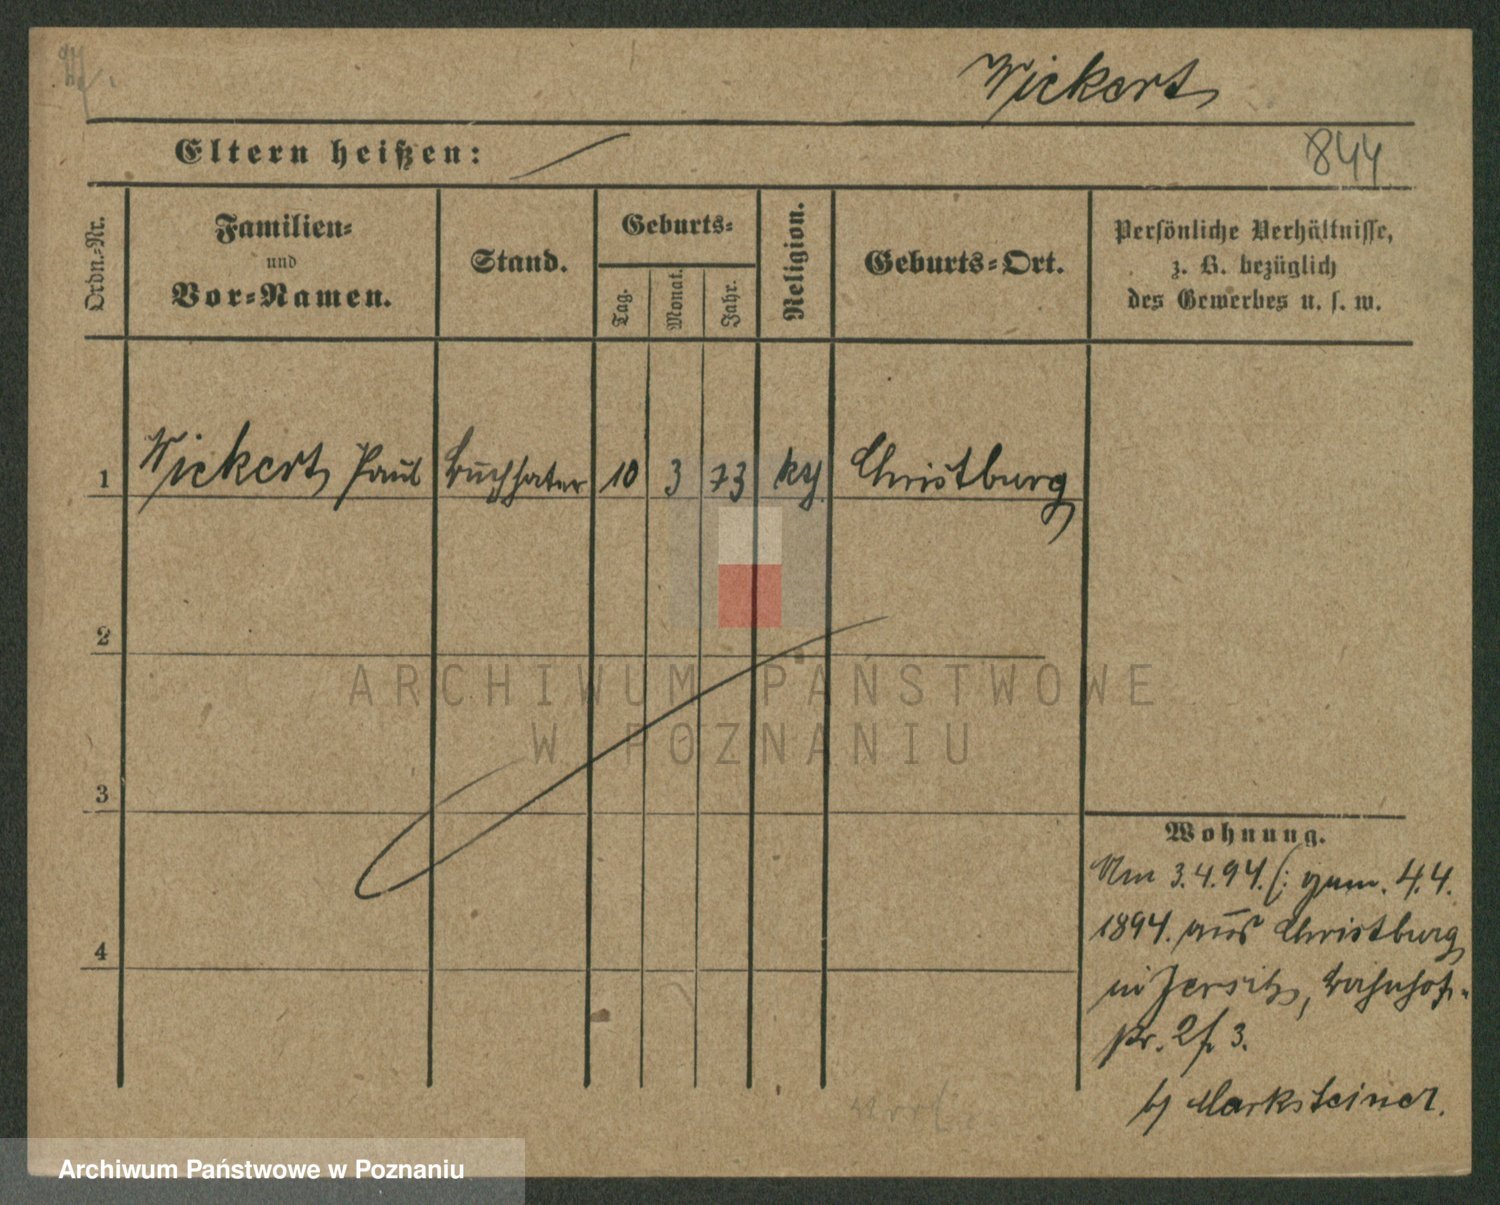 Wickert
844
Eltern heißen:
Ordn.-Nr.
Familien-
und
Vor-Namen.
Stand.
Geburts-
Tag.
Monat.
Jahr.
Religion.
Geburts-Ort.
Persönliche Verhältnisse,
z. B. bezüglich
des Gewerbes u. s. w.
1 Wickert Paul Buchhalter 10 3 73 Christburg
2
3
4
Wohnung.
Am 3.4.94. (: gem. 4.4.
1894. aus Christburg
in Jersitz, Bahnhof-
str. 2f 3.
bj Marksteiner.
ARCHIWUM PAŃSTWOWE
W POZNANIU
Archiwum Państwowe w Poznaniu